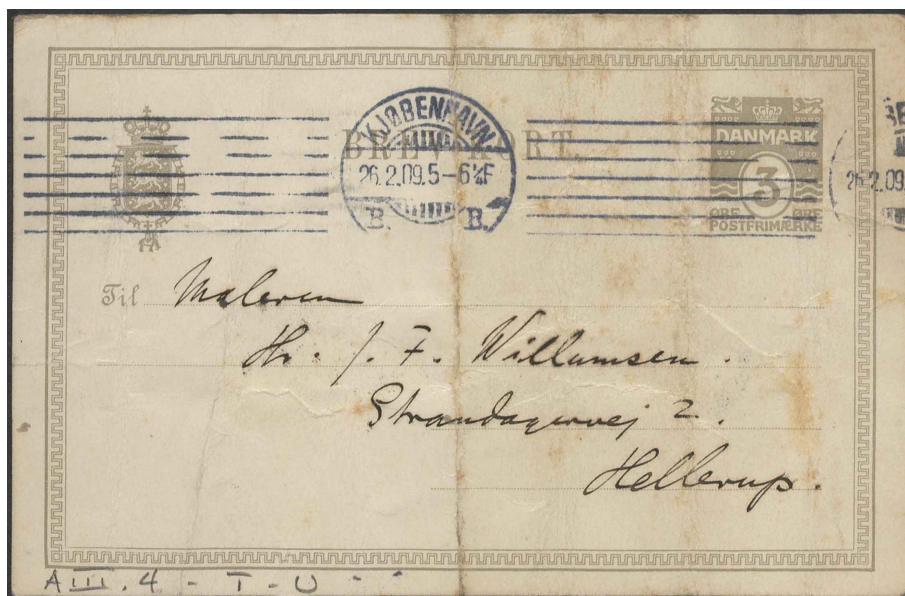 KJØBENHAVN.
BREVKORT.
26.2.09.5-6¼F
B. B.
DANMARK
3
ØRE ØRE
POSTFRIMÆRKE
26.2.09.
Til Maleren
Hr. J. F. Willumsen.
Strandagervej 2.
Hellerup.
A III. 4 - T - U - -